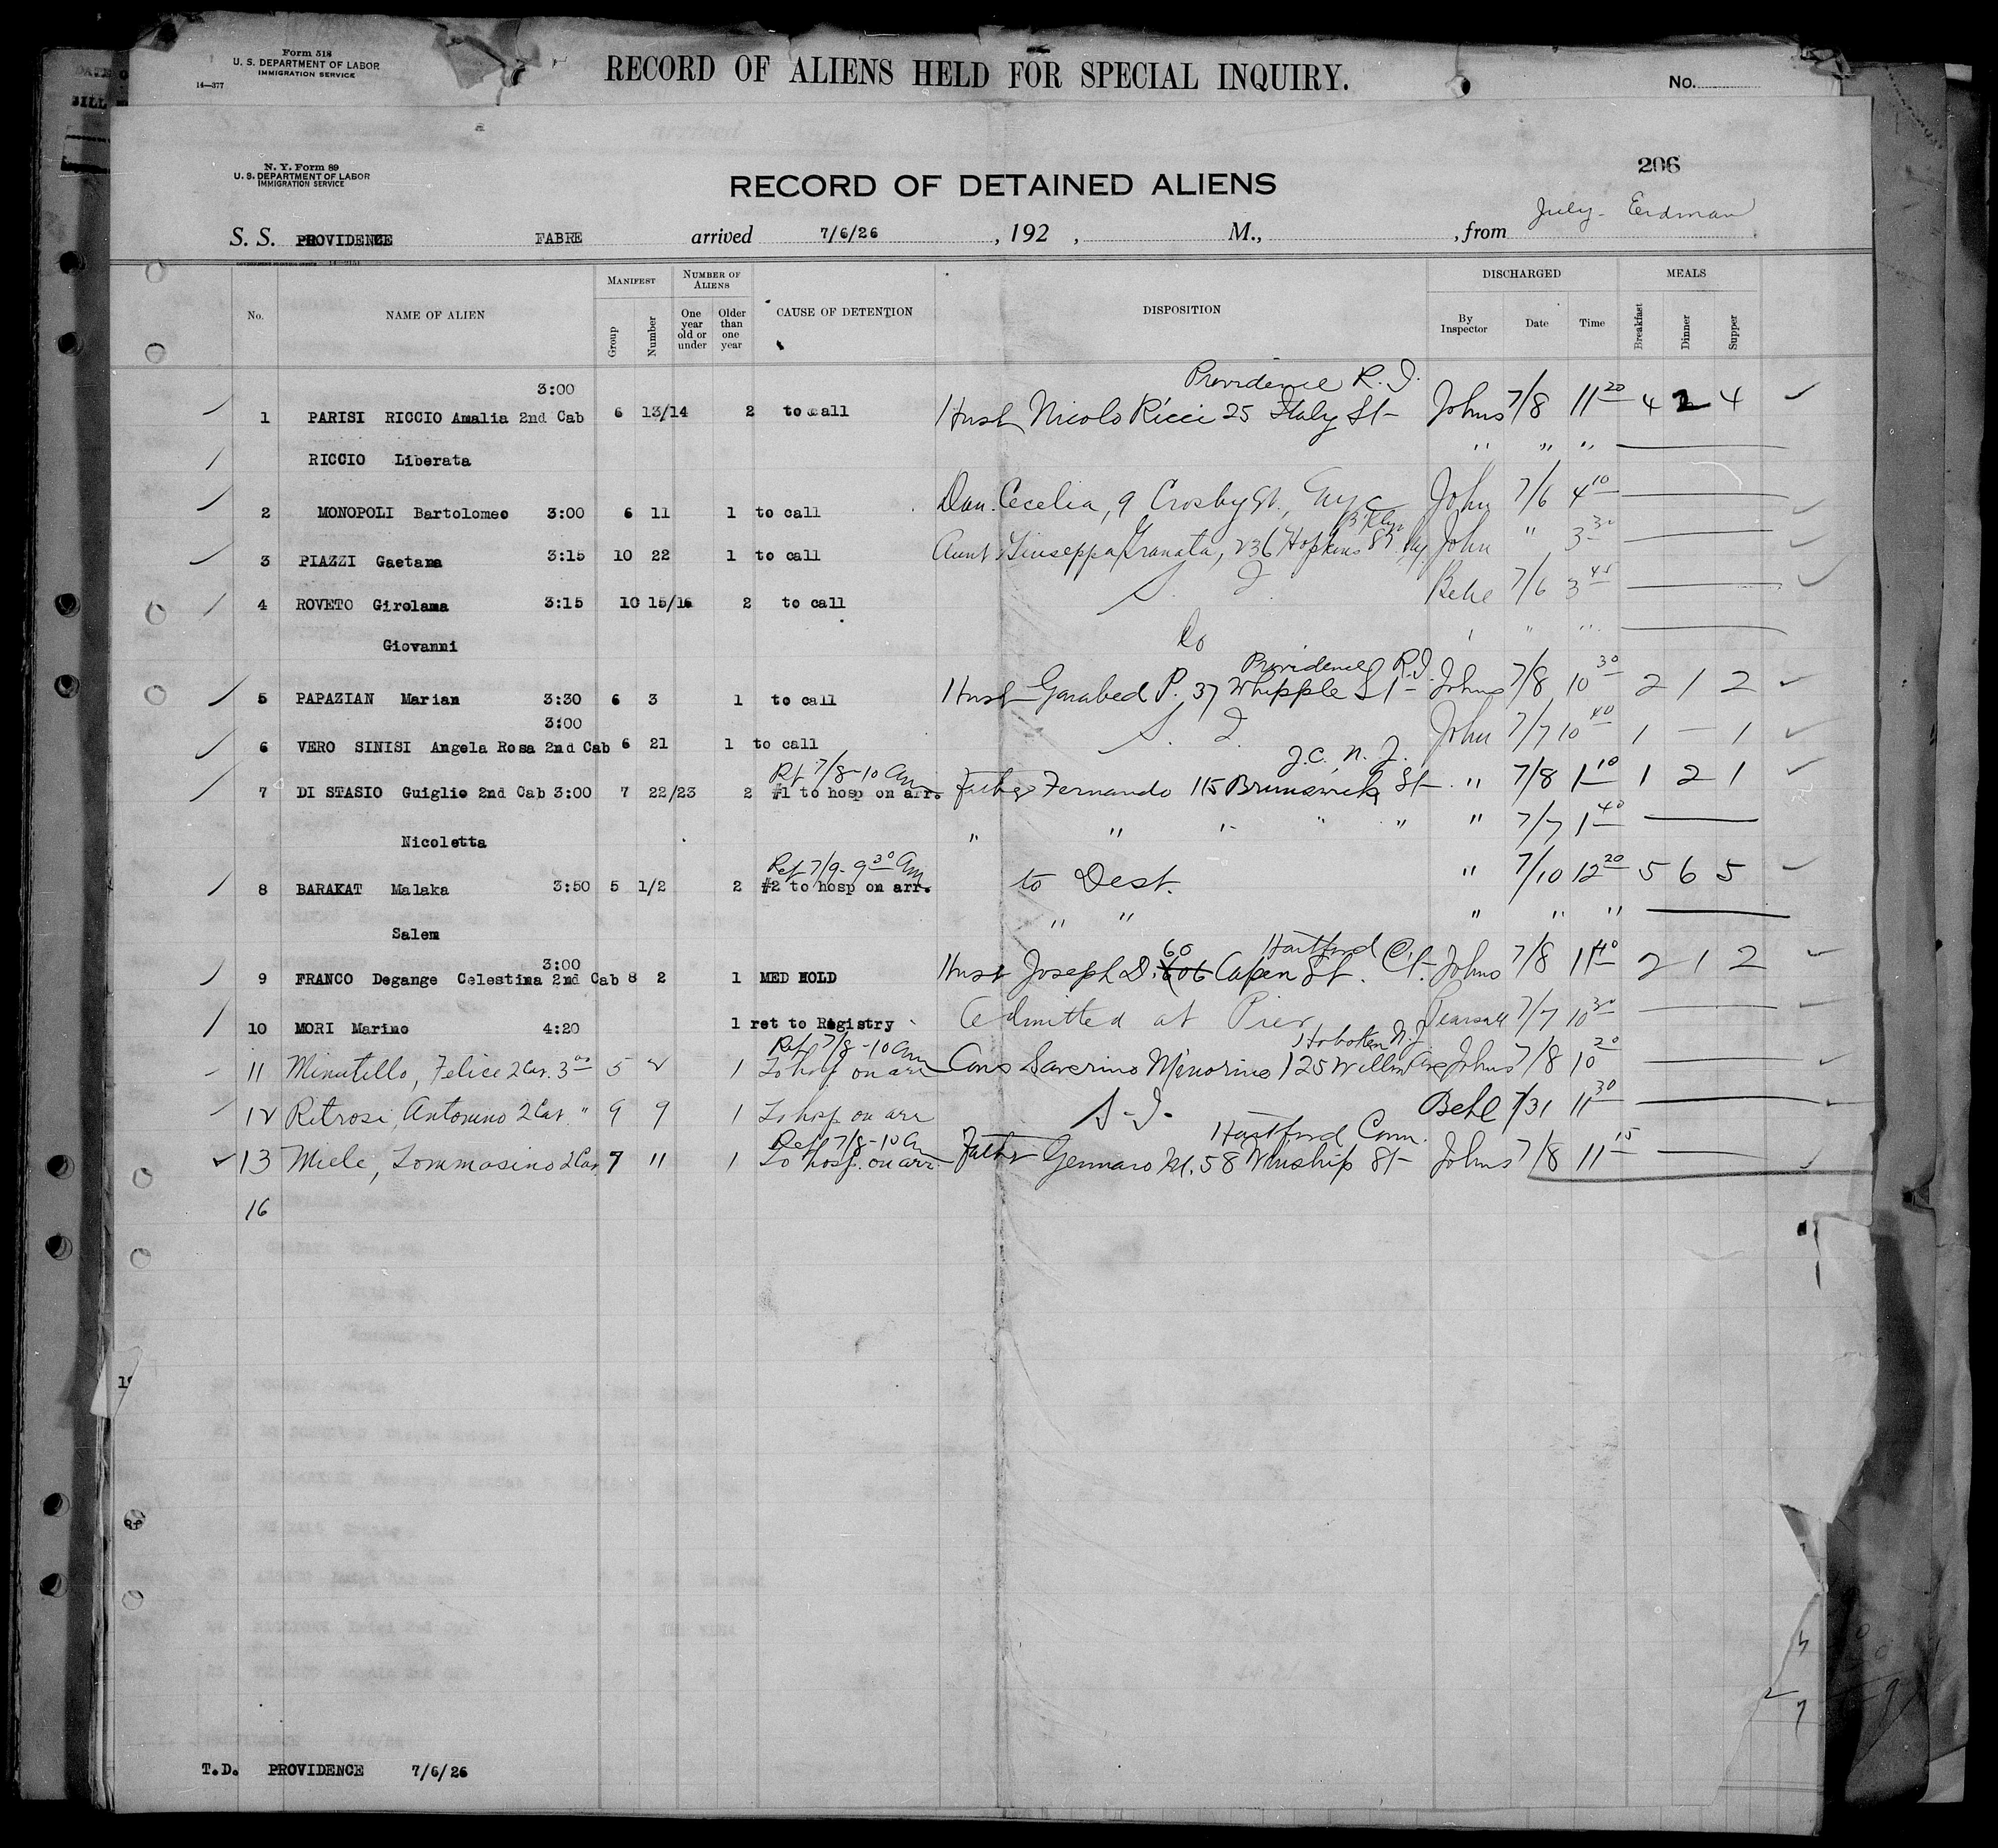 Form 518
U. S. DEPARTMENT OF LABOR
IMMIGRATION SERVICE
14—377
RECORD OF ALIENS HELD FOR SPECIAL INQUIRY.
No.
N. Y. Form 89
U. S. DEPARTMENT OF LABOR
IMMIGRATION SERVICE
RECORD OF DETAINED ALIENS
206
July - Erdman
S. S. PROVIDENCE FABRE arrived 7/6/26, 192 , M., , from
No. NAME OF ALIEN MANIFEST Group Number NUMBER OF ALIENS One year old or under Older than one year CAUSE OF DETENTION DISPOSITION DISCHARGED By Inspector Date Time MEALS Breakfast Dinner Supper
3:00 Providence R. I.
1 PARISI RICCIO Amalia 2nd Cab 6 13/14 2 to call Husb Nicolo Ricci 25 Italy St- Johns 7/8 11 20 4 2 4
RICCIO Liberata " " "
2 MONOPOLI Bartolomeo 3:00 6 11 1 to call Dau. Cecelia, 9 Crosby St., Nyc John 7/6 4 10
B'klyn
3 PIAZZI Gaetana 3:15 10 22 1 to call Aunt Giuseppa Granata, 236 Hopkins St. Ny. John " 3 30
4 ROVETO Girolama 3:15 10 15/16 2 to call S. I. Behe 7/6 3 45
Giovanni do " " "
Providence R.I.
5 PAPAZIAN Marian 3:30 6 3 1 to call Husb Garabed P. 37 Whipple St- Johns 7/8 10 30 2 1 2
3:00
6 VERO SINISI Angela Rosa 2nd Cab 6 21 1 to call S. I. John 7/7 10 40 1 — 1
Ret 7/8-10 Am J.C. N. J.
7 DI STASIO Guiglio 2nd Cab 3:00 7 22/23 2 #1 to hosp on arr. Father Fernando 115 Brunswick St- " 7/8 1 10 1 2 1
Nicoletta " " " " " " 7/7 1 40
Ret 7/9- 9 30 Am
8 BARAKAT Malaka 3:50 5 1/2 2 #2 to hosp on arr. to Dest. " 7/10 12 20 5 6 5
Salem " " " " "
3:00 60 Hartford
9 FRANCO Degange Celestina 2nd Cab 8 2 1 MED HOLD Husb Joseph D. 606 Capen St. Ct- Johns 7/8 11 40 2 1 2
10 MORI Marino 4:20 1 ret to Registry Admitted at Pier Pearsall 7/7 10 30
Ret 7/8-10 Am Hoboken N.J.
11 Minutillo, Felice 2 Cav. 3 00 5 2 1 To hosp on arr Cons Saverino Minorino 125 Willow Ave Johns 7/8 10 20
12 Retrosi, Antonino 2 Cav. " 9 9 1 To hosp on arr S-I- Behe 7/31 11 30
Ret 7/8-10 Am Hartford Conn.
13 Miele, Tommasino 2 Cav. 7 11 1 To hosp. on arr- Father Gennaro M. 58 Winship St- Johns 7/8 11 15
16
T.D. PROVIDENCE 7/6/26